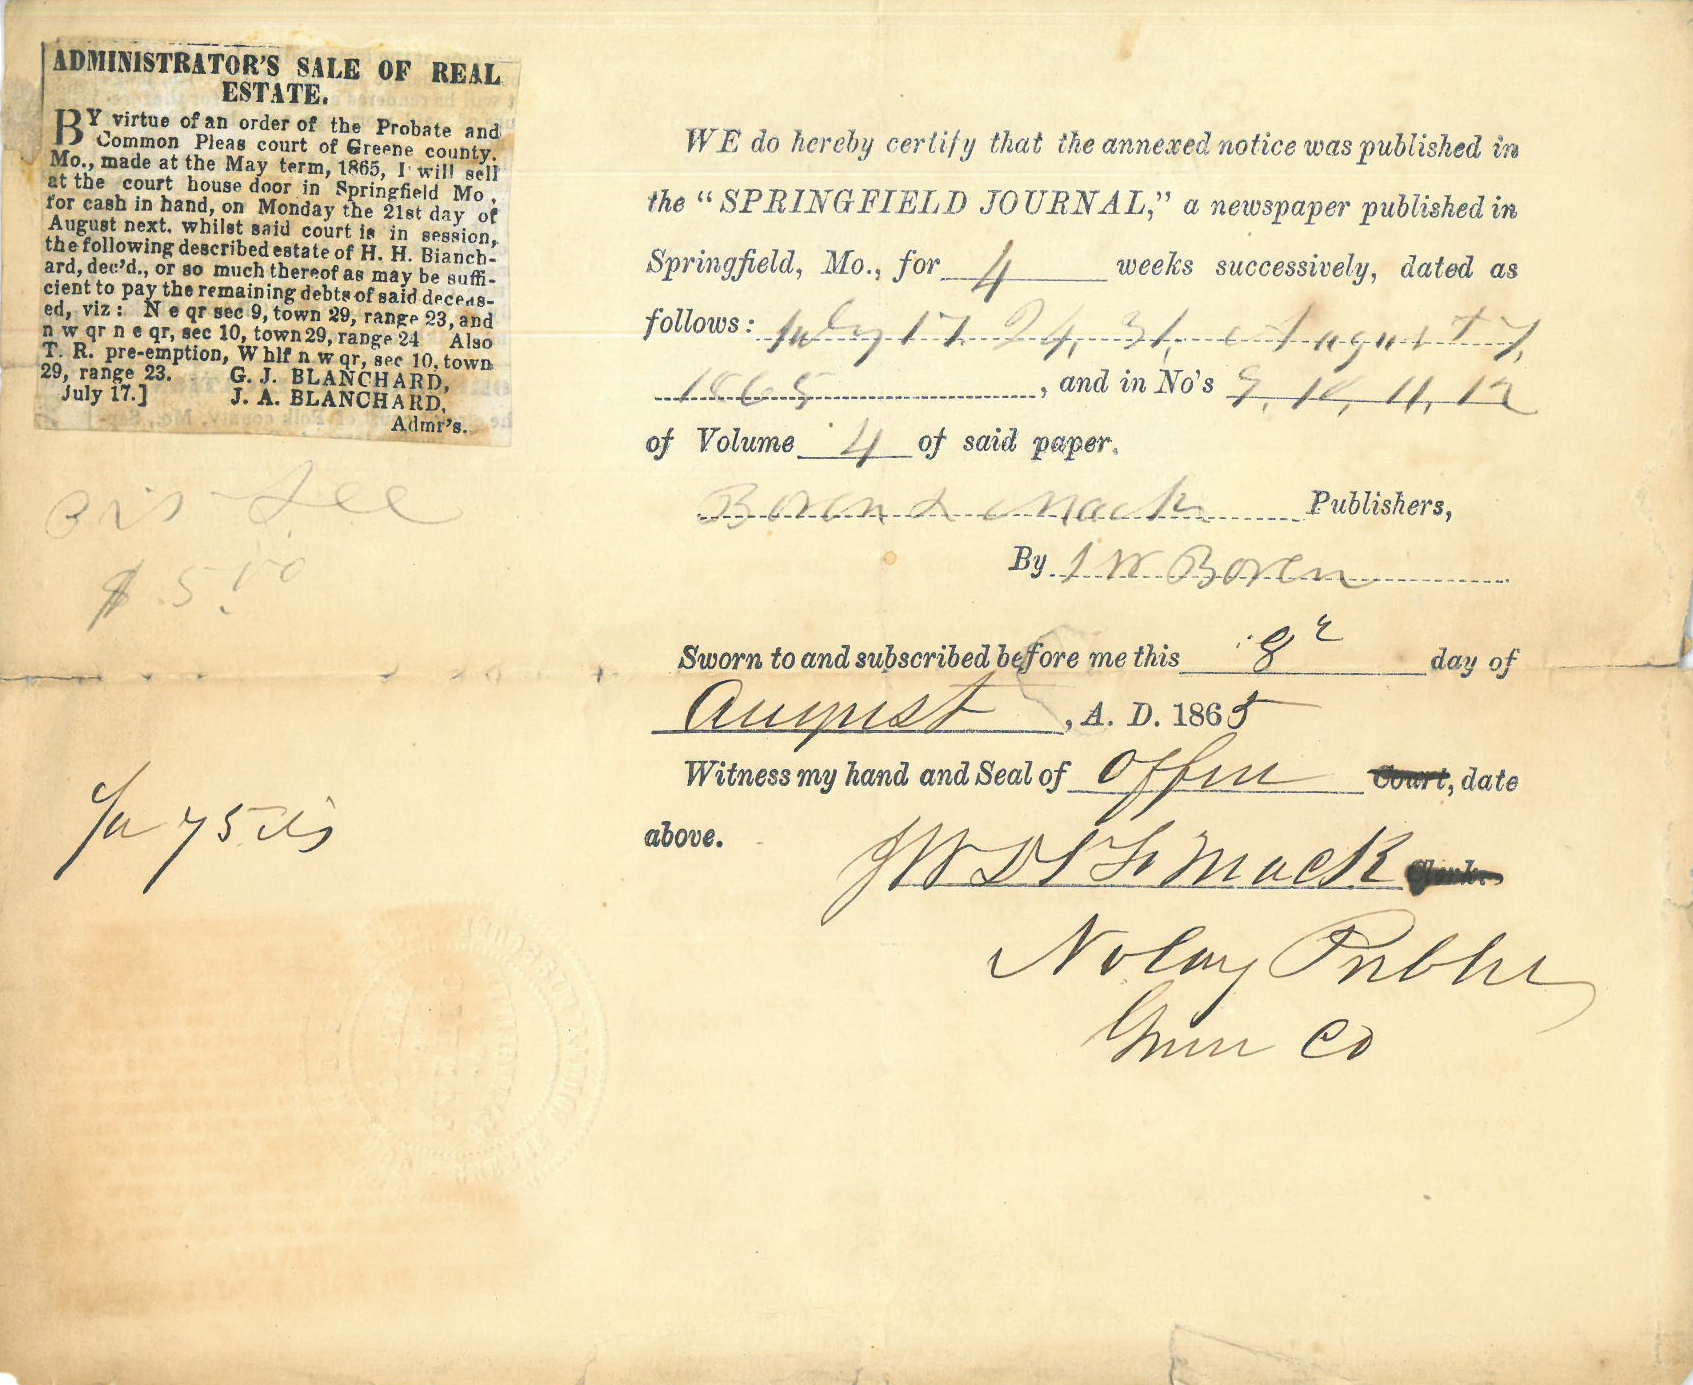 ADMINISTRATOR'S SALE OF REAL
ESTATE.
BY virtue of an order of the Probate and
Common Pleas court of Greene county,
Mo., made at the May term, 1865, I will sell
at the court house door in Springfield Mo,
for cash in hand, on Monday the 21st day of
August next. whilst said court is in session,
the following described estate of H. H. Blanch-
ard, dec'd., or so much thereof as may be suffi-
cient to pay the remaining debts of said deceas-
ed, viz: N e qr sec 9, town 29, range 23, and
n w qr n e qr, sec 10, town 29, range 24 Also
T. R. pre-emption, W hlf n w qr, sec 10, town
29, range 23. G. J. BLANCHARD,
July 17.] J. A. BLANCHARD,
Admr's.
Fee
$5.00
WE do hereby certify that the annexed notice was published in
the "SPRINGFIELD JOURNAL," a newspaper published in
Springfield, Mo., for 4 weeks successively, dated as
follows: July 17. 24, 31, August 7,
1865, and in No's 9, 10, 11, 12
of Volume 4 of said paper.
Boren & Mack Publishers,
By J W Boren
Sworn to and subscribed before me this 8 day of
August, A. D. 1865
Witness my hand and Seal of Office Court, date
above.
Mack Clerk.
Notary Public
Green Co
75 cts